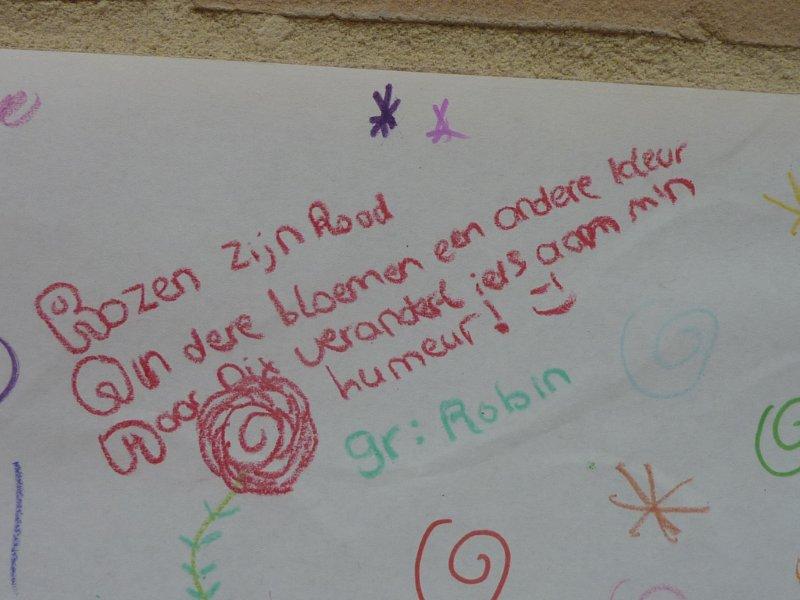 Rozen zijn Rood
Andere bloemen een andere kleur
Maar nix verandert iets aam m'n
humeur! :-)
gr: Robin